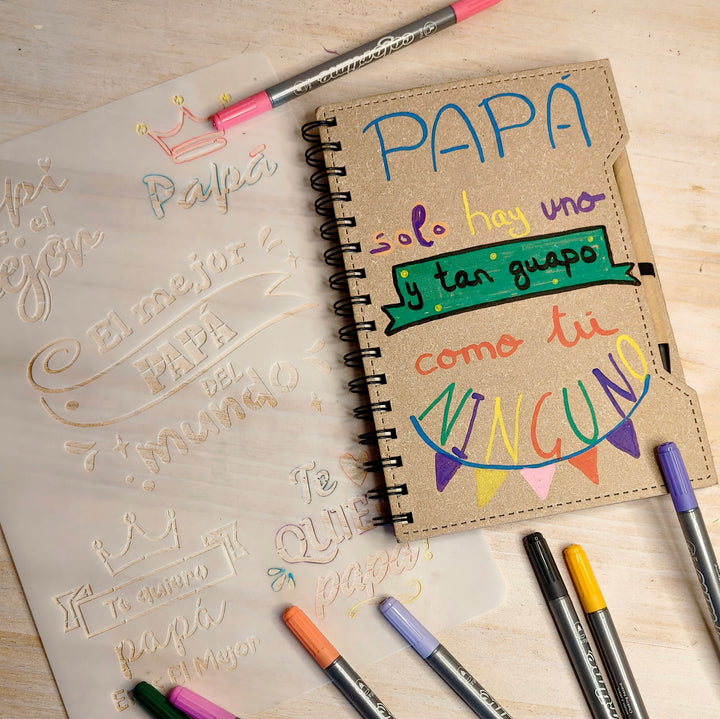 PAPÁ
solo hay uno
y tan guapo
como tú
NINGUNO
Papá
es el
mejor
El mejor
PAPÁ
DEL
mundo
Te
papá
Te quiero
papá
Eres El Mejor